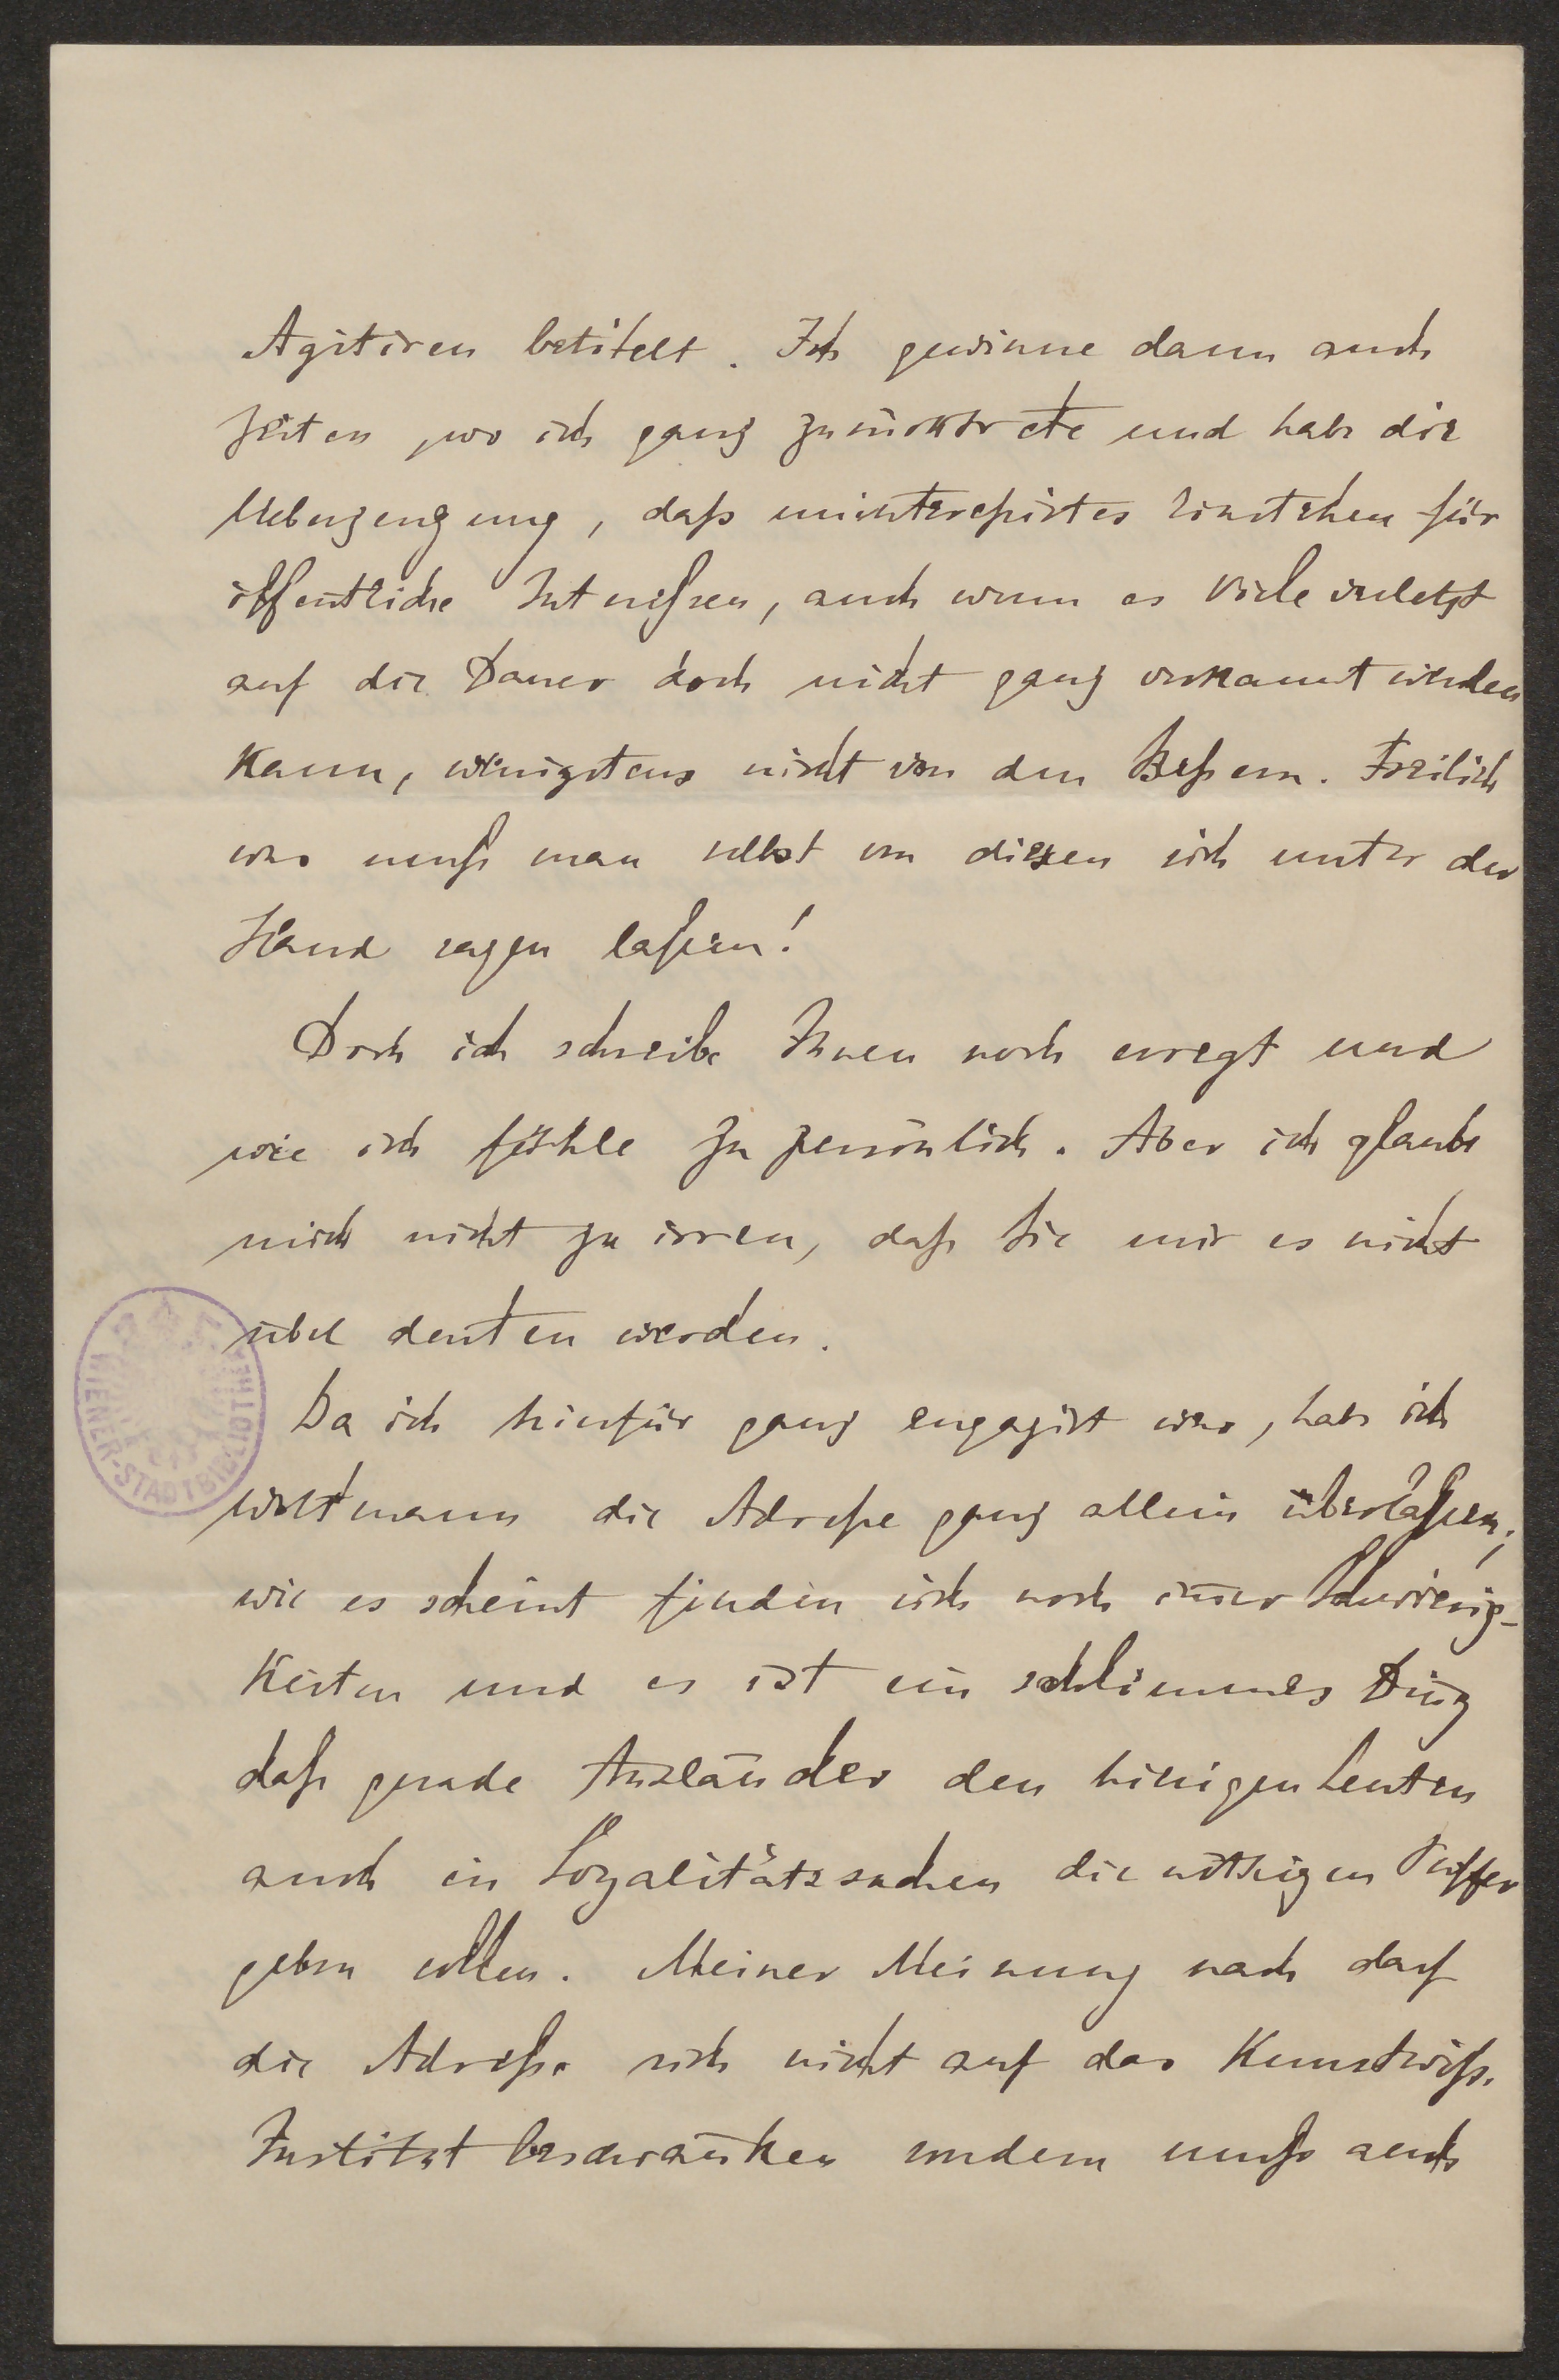 Agitiren betitelt. Ich gewinne dann auch
Zeiten, wo ich ganz zurücktrete und habe die
Ueberzeugung, daß uninteressirtes Einstehen für
öffentliche Interessen, auch wenn es Viele verletzt
auf die Dauer doch nicht ganz verkannt werden
kann, wenigstens nicht von den Bessern. Freilich
was muß man selbst von diesen sich unter der
Hand sagen lassen!
Doch ich schreibe Ihnen noch erregt und
wie ich fühle zu persönlich. Aber ich glaube
mich nicht zu irren, daß Sie mir es nicht
übel deuten werden.
Da ich hinfür ganz engagirt war, habe ich
Woltmann die Adresse ganz allein überlassen;
wie es scheint finden sich noch im̄er Schwierig-
keiten und es ist ein schlimmes Ding
daß gerade Ausländer den hiesigen Leuten
auch in Loyalitätssachen die nöthigen Puffer
geben sollen. Meiner Meinung nach darf
die Adresse sich nicht auf das Kunstwiss.
Institut beschränken sondern muß auch
WIENER-STADTBIBLIOTHEK